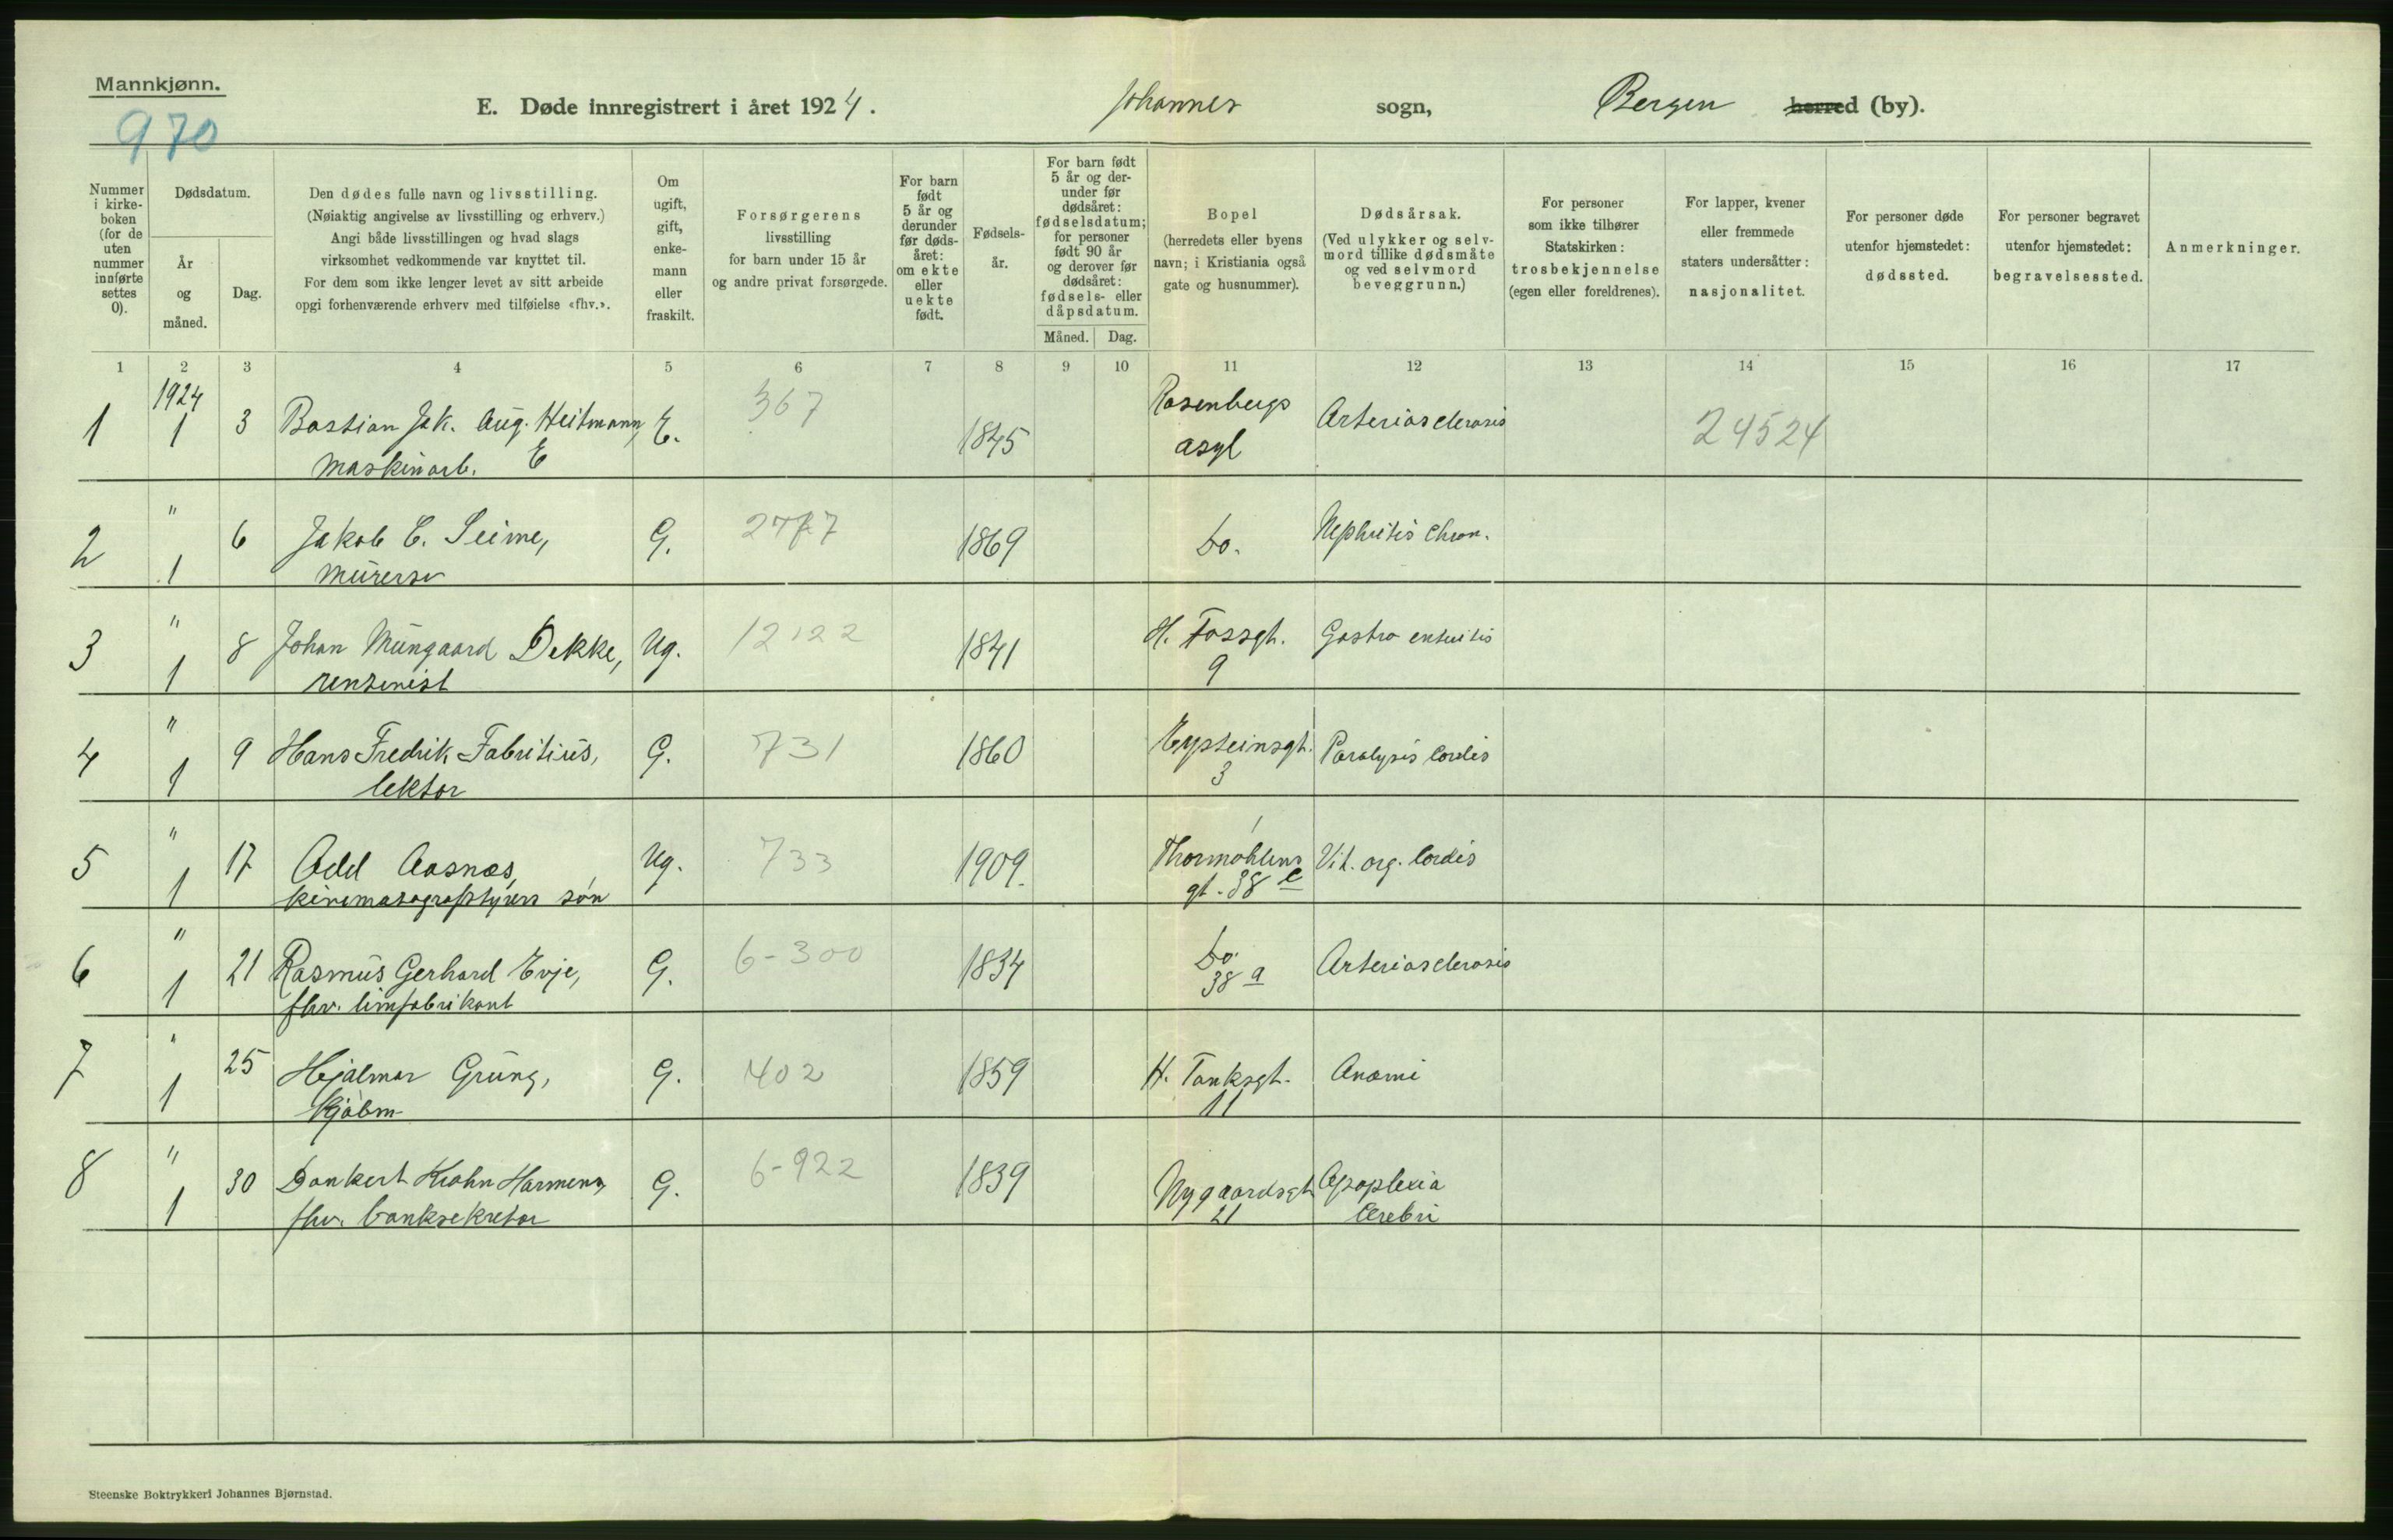 Mannkjønn.
E. Døde innregistrert i året 1924. Johannes sogn, Bergen herred (by).
970
Nummer i kirkeboken (for de uten nummer innførte settes 0).
Dødsdatum.
År og måned.
Dag.
Den dødes fulle navn og livsstilling.
(Nøiaktig angivelse av livsstilling og erhverv.)
Angi både livsstillingen og hvad slags
virksomhet vedkommende var knyttet til.
For dem som ikke lenger levet av sitt arbeide
opgi forhenværende erhverv med tilføielse «fhv.».
Om ugift, gift, enkemann eller fraskilt.
Forsørgerens
livsstilling
for barn under 15 år
og andre privat forsørgede.
For barn født 5 år og derunder før dødsåret: om ekte eller uekte født.
Fødselsår.
For barn født 5 år og derunder før dødsåret: fødselsdatum; for personer født 90 år og derover før dødsåret: fødsels- eller dåpsdatum.
Måned. Dag.
Bopel
(herredets eller byens
navn; i Kristiania også
gate og husnummer).
Dødsårsak.
(Ved ulykker og selvmord tillike dødsmåte og ved selvmord beveggrunn.)
For personer
som ikke tilhører
Statskirken:
trosbekjennelse
(egen eller foreldrenes).
For lapper, kvener
eller fremmede
staters undersåtter:
nasjonalitet.
For personer døde
utenfor hjemstedet:
dødssted.
For personer begravet
utenfor hjemstedet:
begravelsessted.
Anmerkninger.
1 2 3 4 5 6 7 8 9 10 11 12 13 14 15 16 17
1 1924 1 3 Bastian Jak. Aug. Heitmann, E. 367 1845 Rosenbergs asyl Arteriosclerosis 24524
maskinarb. E
2 " 1 6 Jakob C. Seime, G. 2777 1869 Do. Nephritis chron.
murersv
3 " 1 8 Johan Mungaard Dekke, Ug. 12122 1841 H. Fossgt. 9 Gastro enteritis
rentenist
4 " 1 9 Hans Fredrik Fabritius, G. 731 1860 Eysteinsgt. 3 Paralysis cordis
lektor
5 " 1 17 Odd Aasnæs, Ug. 733 1909. Thormøhlens gt. 38 c Vit. org. cordis
kinematografstyrers søn
6 " 1 21 Rasmus Gerhard Evje, G. 6-300 1834 Do. 38 a Arteriosclerosis
fhv. limfabrikant
7 " 1 25 Hjalmar Grung, G. 402 1859 H. Tanksgt. 11 Anæmi
Kjøbm
8 " 1 30 Dankert Krohn Harmens, G. 6-922 1839 Nygaardsgt 21 Apoplexia cerebri
fhv. banksekretær
Steenske Boktrykkeri Johannes Bjørnstad.